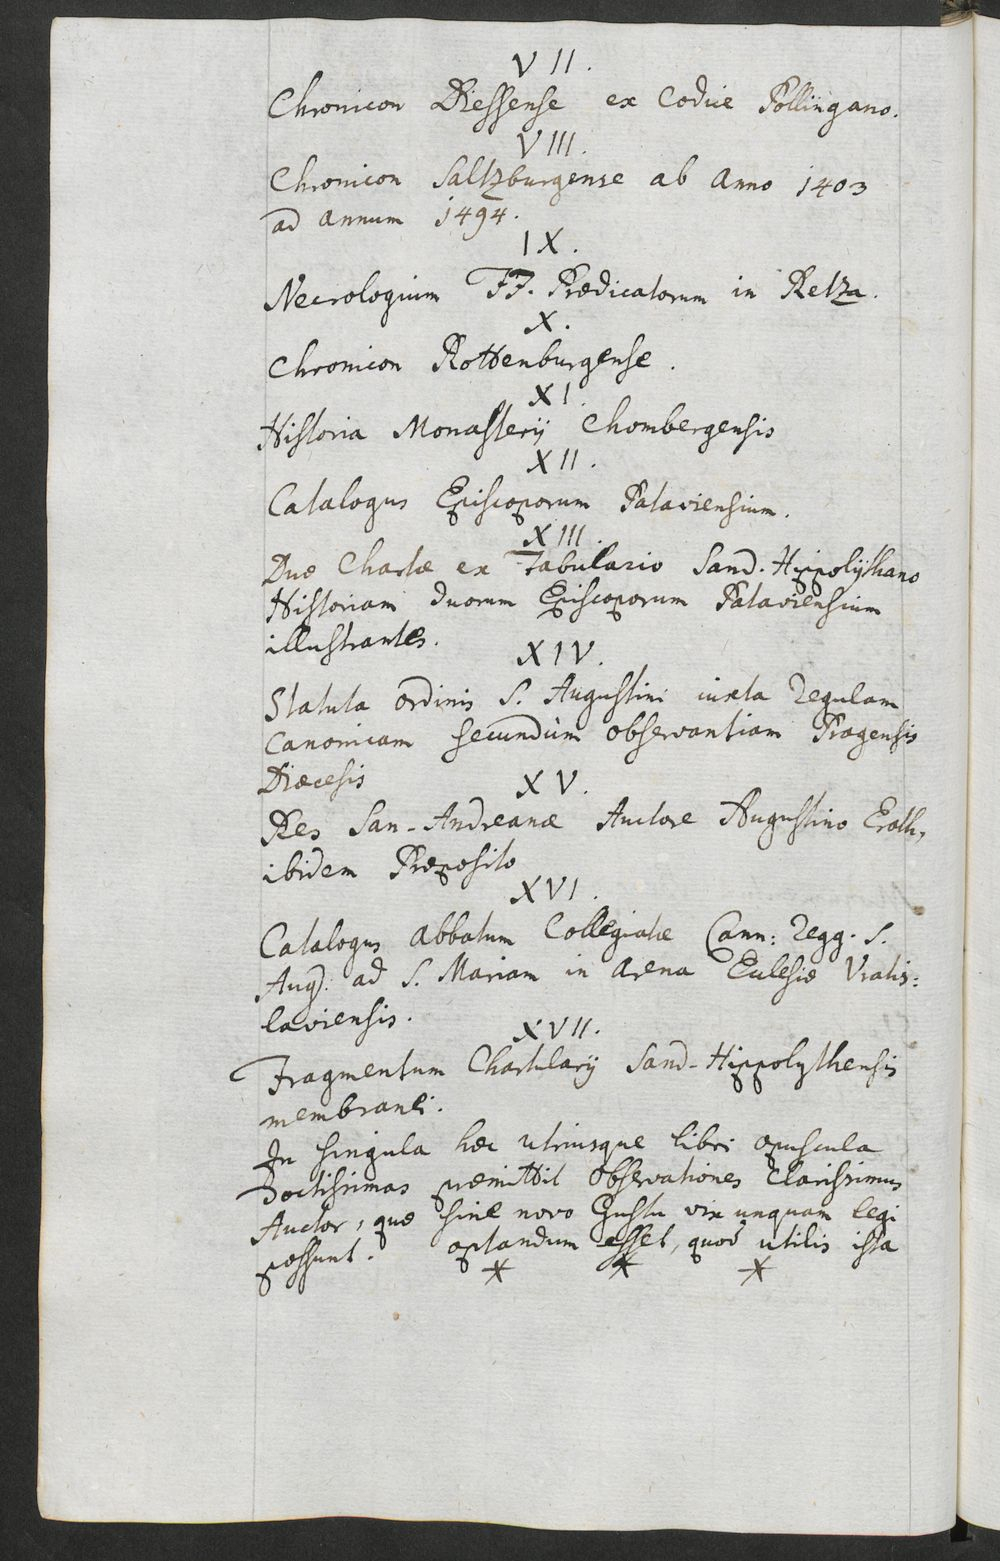 VII.
Chronicon Diessense ex Codice Pollingano.
VIII.
Chronicon Saltzburgense ab Anno 1403
ad annum 1494.
IX.
Necrologium FF. Prædicatorum in Retza.
X.
Chronicon Rottenburgense.
XI.
Historia Monasterij Chombergensis
XII.
Catalogus Episcoporum Pataviensium.
XIII.
Duæ Chartæ ex Tabulario Sand-Hippolÿthano
Historiam duorum Episcoporum Pataviensium
illustrantes.
XIV.
Statuta ordinis S. Augustini iuxta Regulam
Canonicam secundum observantiam Pragensis
Diœcesis
XV.
Res San-Andreanæ Auctore Augustino Erath,
ibidem Præposito
XVI.
Catalogus abbatum Collegiatæ Cann: Regg. S.
Aug: ad S. Mariam in Arena Eulesiæ Vratis:
laviensis.
XVII.
Fragmentum Chartularij Sand-Hippolythensis
membranei.
In singula hæc utriusque libri opuscula
doctissimas præmittit observationes Clarissimus
Auctor, quæ sine novo Gustu vix unquam legi
possunt. optandum esset, quod utilis ista
* * *